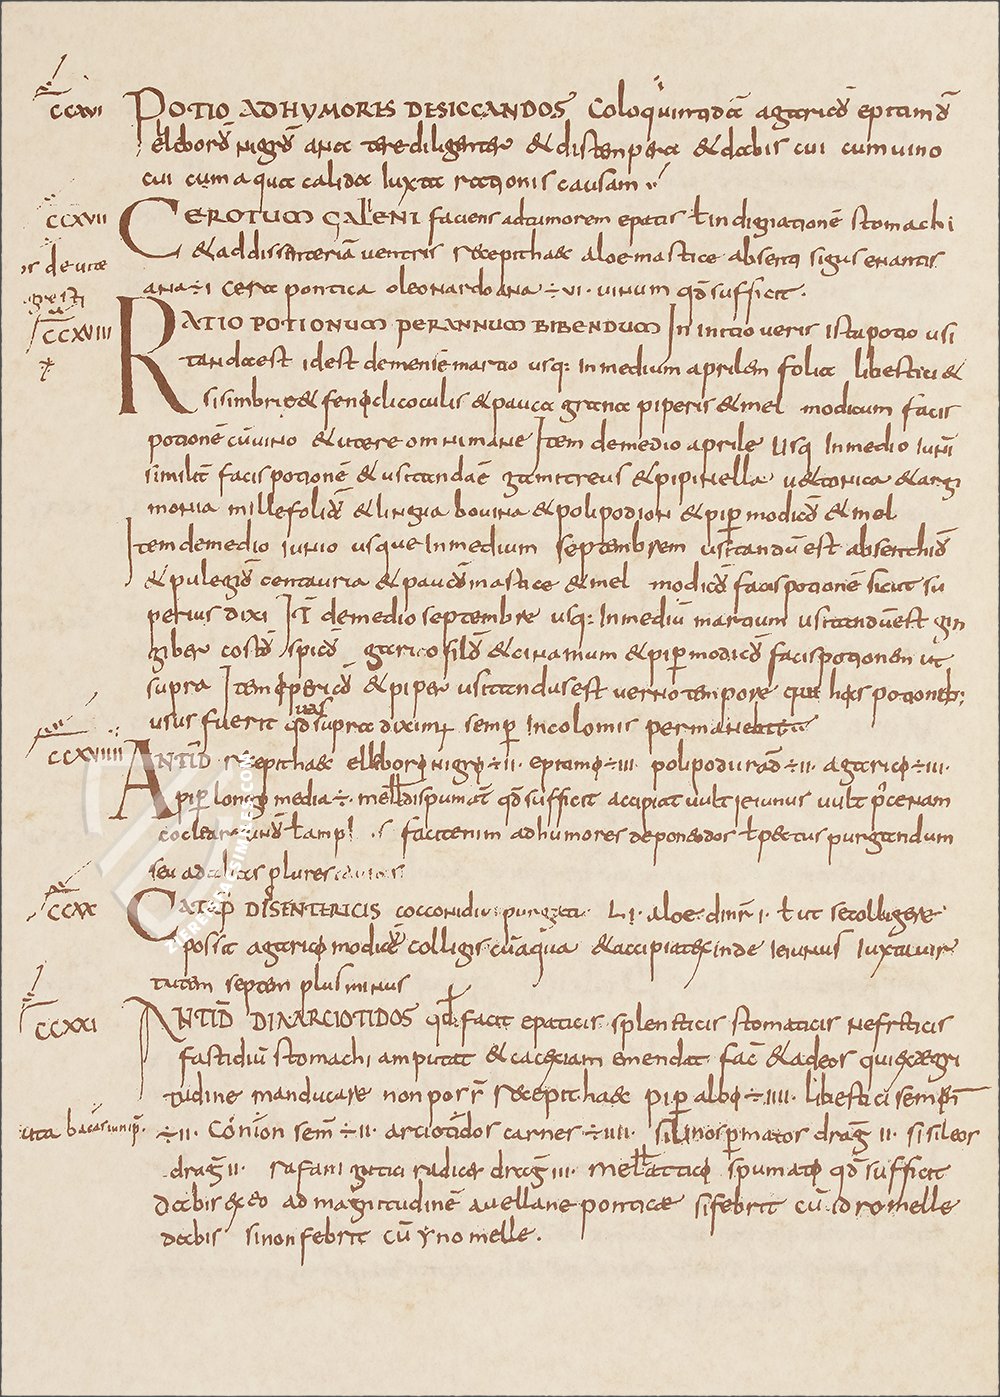 CCXVI POTIO ADHUMORES DESICCANDOS Coloquintidã agaricũ eptamũ
elleborũ nigrũ ana tere diligenter & distempera & dabis cui cum uino
cui cum aqua calida Iuxta rationis causam
CCXVII CEROTUM GALIENI faciens adtumorem epatis ł indigiationẽ stomachi
& addissinteriã uentris recepit haec aloe mastice absenti sigus enantis
is de uitae
ana ÷ I cera pontica oleo nardo ana ÷ VI · uinum qđ sufficit ·
gresti
CCXVIII RATIO POTIONUM PERANNUM BIBENDUM In initio ueris ista potio usi
tanda est id est demense martio usq: in medium aprilem folia libestici &
sisimbrio & fenocli coculis & pauca grana piperis & mel modicum facis
potionẽ cũ uino & utere omni mane Item demedio aprile Usq In medio Iuni
similit facis potionẽ & usitandaẽ gamitreus & pipinella uetonica & argi
monia millefoliũ & lingua bouina & polipodion & pip modicũ & mel
Item demedio iunio usque In medium septembrem usitandũ est absenthiũ
& pulegiũ centauria & paucũ mastice & mel modicũ facis potionẽ sicut su
perius dixi It demedio septembre usq: In mediũ martium usitandũ est gin
giber costũ spicũ garico silũ & cinamum & pip modicũ facis potionem ut
supra Item iperico & piper usitandus est uerno tempore qui has potionib:
usus fuerit qđ supra diximus semp Incolomis permanebit
CCXVIIII ANTIĐ recepit haec elleboro nigro ÷ II · eptamo ÷ III polipodu rađ ÷ II · agarico ÷ III ·
pip longo media ÷ · mell dispumat qđ sufficit accipiat uult ieiunus uult p cenam
coclear unũ ł ampl facit enim adhumores deponendos ł pectus purgandum
seu ad alias plures
CCXX CATAP DISENTERICIS cocconidiu purgati LI · aloe dinr I · ł ut se colligere
possit agarico modicũ colligis cũ aqua & accipiat exinde Ieiunus Iuxta uir
tutem septem plus minus
CCXXI ANTIĐ DIAARCIOTIDOS qđ facit epaticis splenticis stomaticis nefreticis
fastidiũ stomachi amputat & cacexiam emendat fac & adeos qui ex aegri
tudine manducare non poss recepit haec pip albo ÷ IIII · libestici semen
÷ II · Conion sem ÷ II · arciotidos carnes ÷ IIII · silinospmatos drag II · sisileos
drag II · rafani gitici radice drag III · mell attico spumato qđ sufficit
dabis ex eo ad magnitudinẽ auellane ponticae si febrit cũ idromelle
dabis si non febrit cũ ynomelle ·